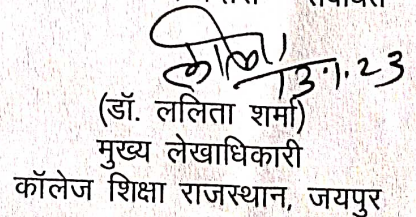 13.1.23
(डॉ. ललिता शर्मा)
मुख्य लेखाधिकारी
कॉलेज शिक्षा राजस्थान, जयपुर